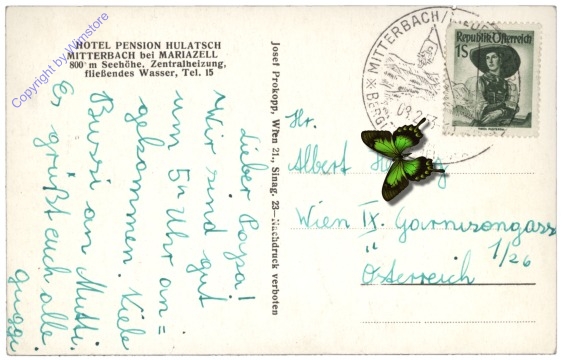 HOTEL PENSION HULATSCH
MITTERBACH bei MARIAZELL
800 m Seehöhe. Zentralheizung,
fließendes Wasser, Tel. 15
Copyright by Wimstore
Lieber Papa!
Wir sind gut
um 5h Uhr an=
gekommen. Viele
Bussi an Mutti.
Es grüßt euch alle
Josef Prokopp, Wien 21., Sinag. 23—Nachdruck verboten
MITTERBACH/
Republik Österreich
1S
Hr.
Albert
Wien IX. Garnisongass
1/26
Österreich